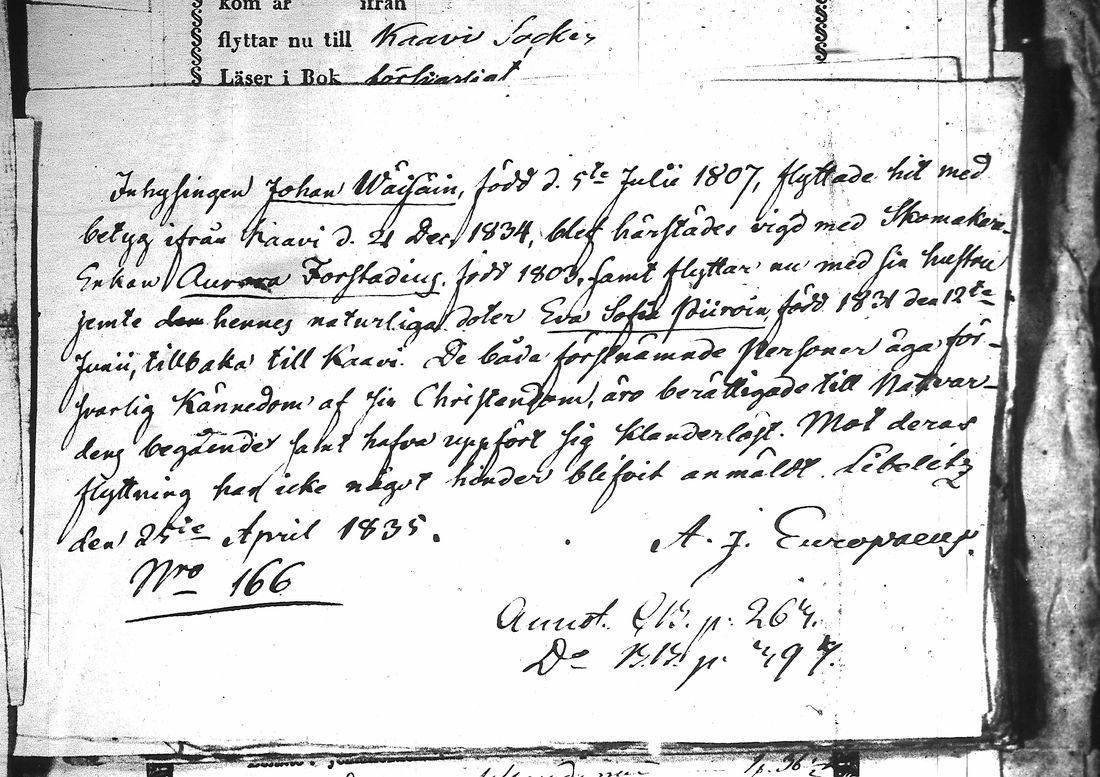 kom år ifrån
flyttar nu till Kaavi Socken
Läser i Bok försvarligt
Inhysingen Johan Wäisäin, född d. 5te Julii 1807, flyttade hit med
betyg ifrån Kaavi d. 21 Dec. 1834, blef härstädes vigd med Skomakere-
Enkan Aurora Forstadius, född 1803, samt flyttar nu med sin hustru
jemte den hennes naturliga doter Eva Sofia Piiroin, född 1831 den 12te
Junii, tillbaka till Kaavi. De båda förstnämnde personer äga för-
svarlig kännedom af sin Christendom, äro berättigade till Nattvar-
dens begående samt hafva uppfört sig klanderlöst. Mot deras
flyttning har icke något hinder blifvit anmäldt. Libelitz
den 25te April 1835.
A. J. Europaeus.
Nro 166
Annot. p. 267.
Do B.B. p. 497.